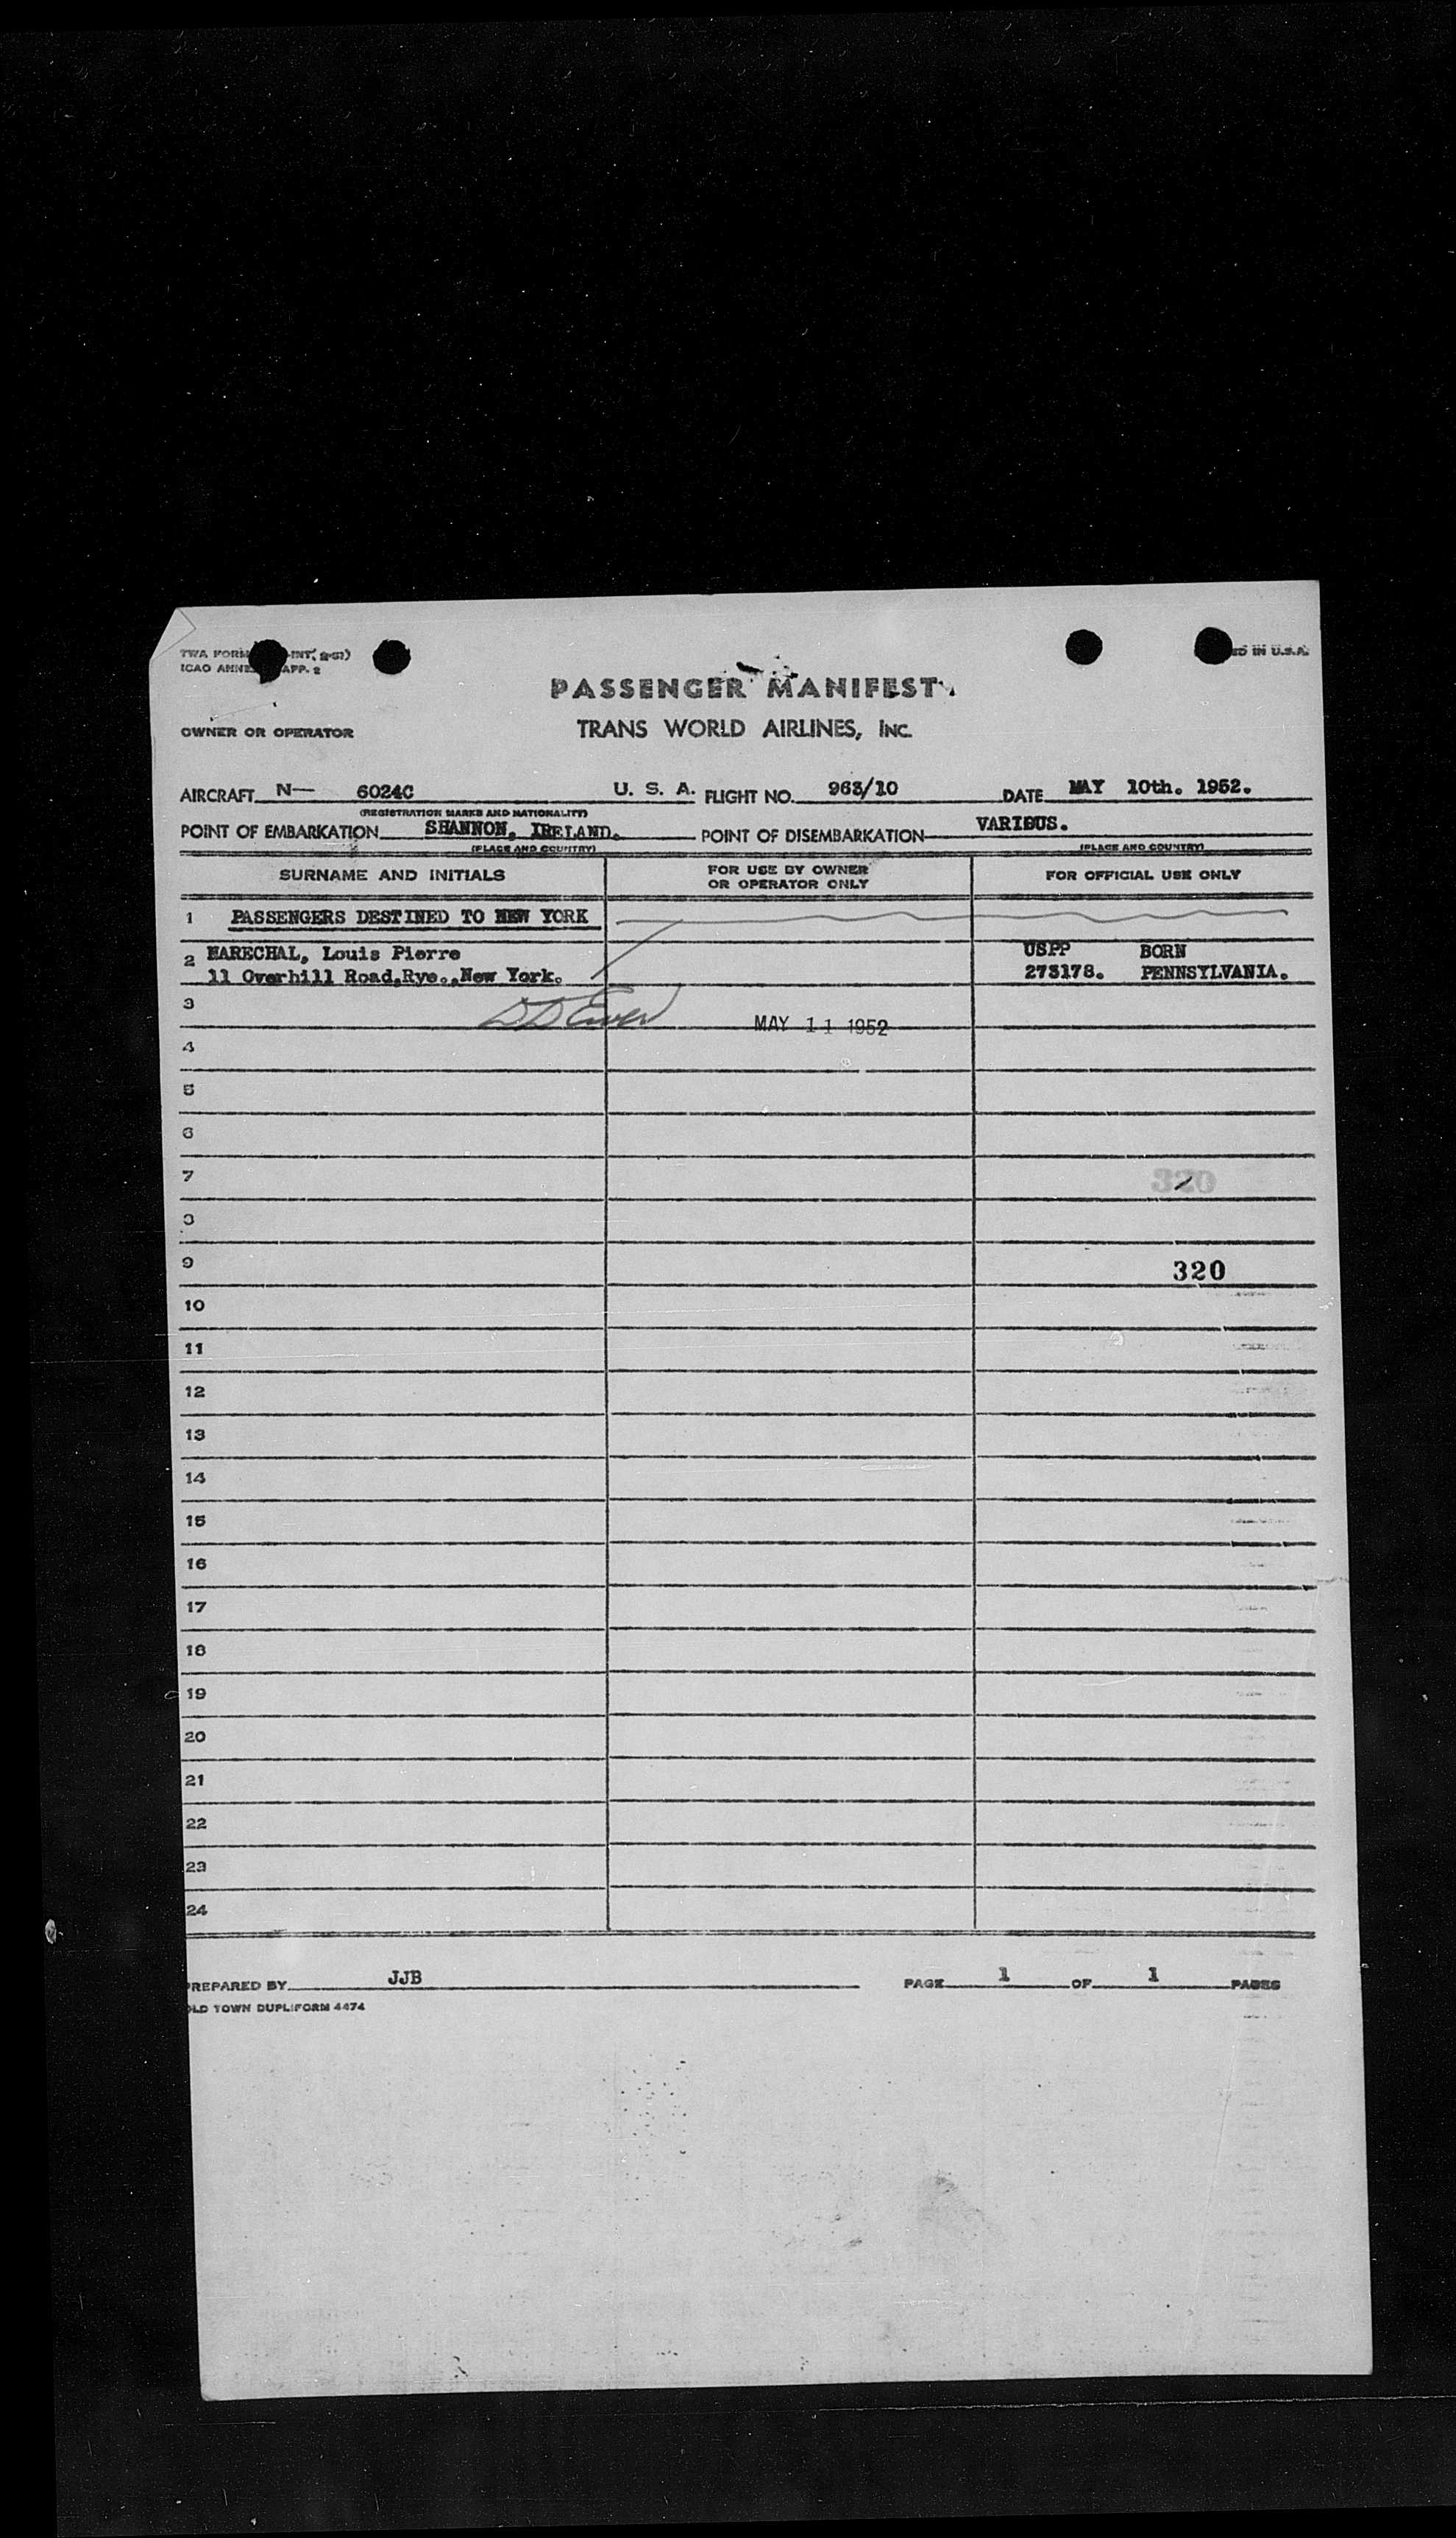 TWA FORM INT, 2-51)
ICAO ANNE APP. 2
ED IN U.S.A.
PASSENGER MANIFEST
OWNER OR OPERATOR
TRANS WORLD AIRLINES, INC.
AIRCRAFT N— 6024C U. S. A. FLIGHT NO. 963/10 DATE MAY 10th. 1952.
(REGISTRATION MARKS AND NATIONALITY)
POINT OF EMBARKATION SHANNON, IRELAND. POINT OF DISEMBARKATION VARIOUS.
(PLACE AND COUNTRY) (PLACE AND COUNTRY)
SURNAME AND INITIALS FOR USE BY OWNER OR OPERATOR ONLY FOR OFFICIAL USE ONLY
1 PASSENGERS DESTINED TO NEW YORK
2 MARECHAL, Louis Pierre USPP BORN
11 Overhill Road,Rye.,New York. 273178. PENNSYLVANIA.
3
MAY 11 1952
4
5
6
7 320
8
9 320
10
11
12
13
14
15
16
17
18
19
20
21
22
23
24
PREPARED BY JJB PAGE 1 OF 1 PAGES
OLD TOWN DUPLIFORM 4474